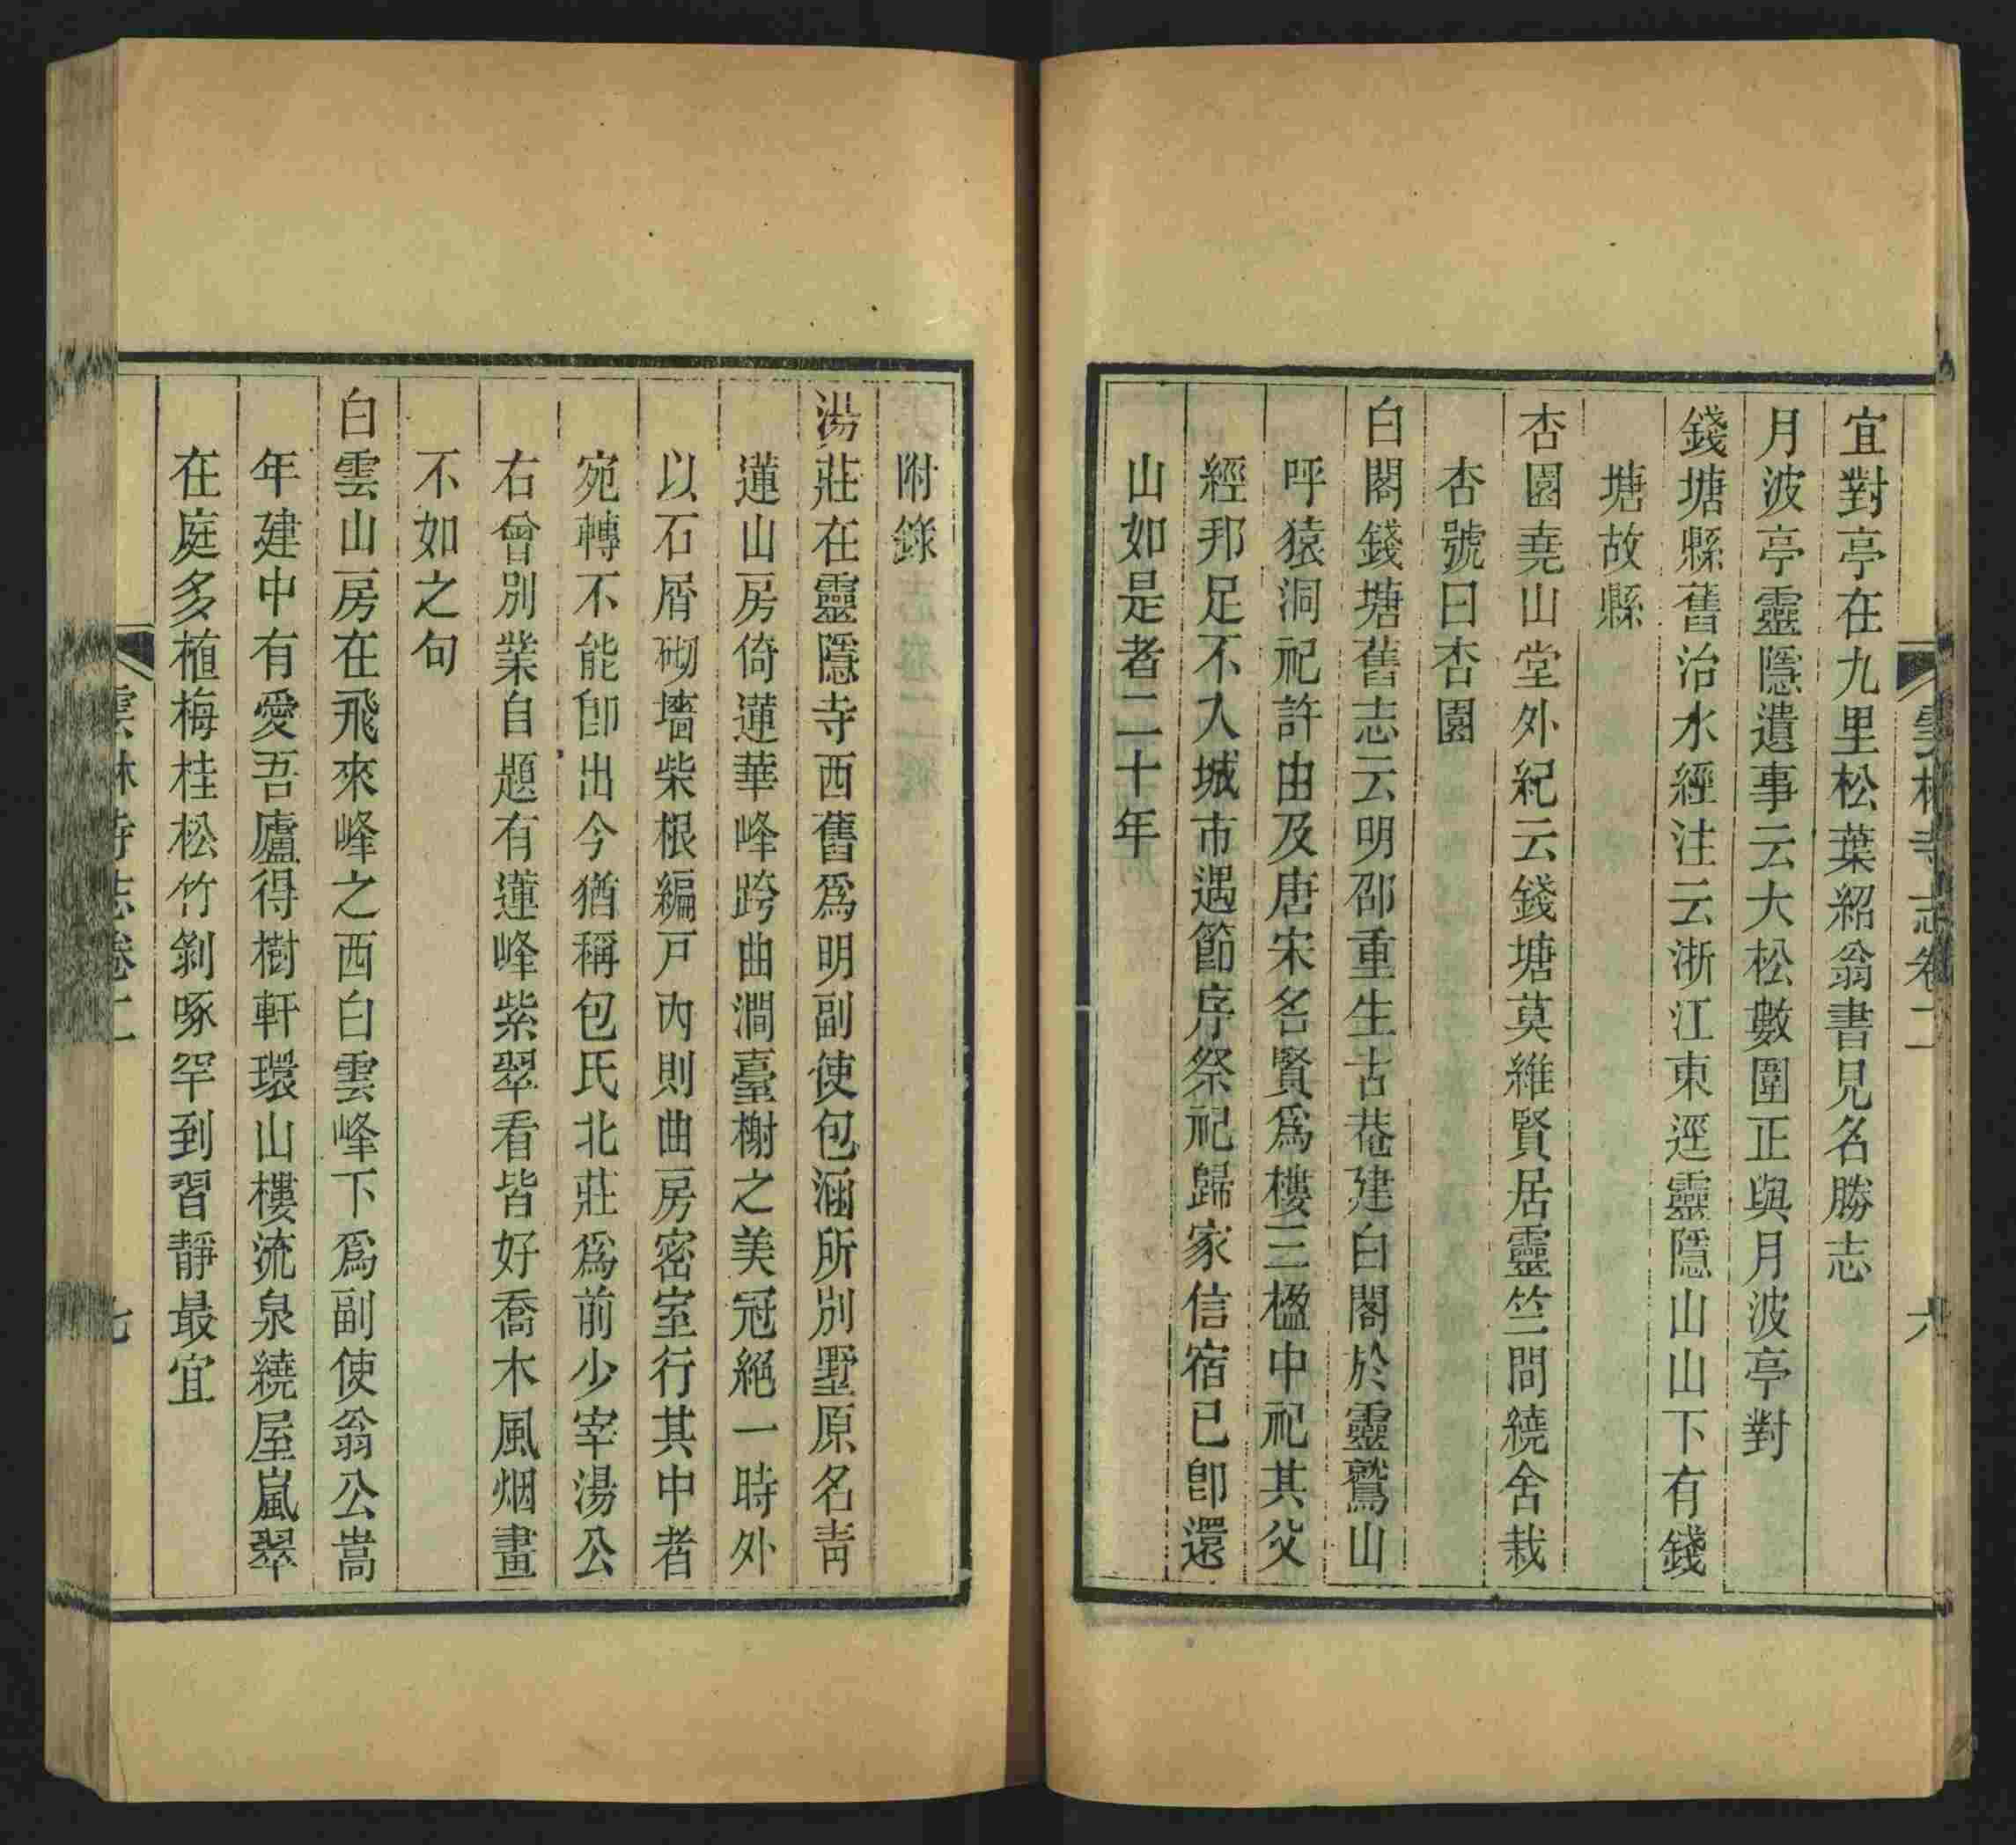 雲林寺志卷二 六
宜對亭在九里松葉紹翁書見名勝志
月波亭靈隱遺事云大松數圍正與月波亭對
錢塘縣舊治水經注云浙江東逕靈隱山山下有錢
塘故縣
杏園堯山堂外紀云錢塘莫維賢居靈竺間繞舍栽
杏號曰杏園
白閣錢塘舊志云明邵重生古菴建白閣於靈鷲山
呼猿洞祀許由及唐宋名賢爲樓三楹中祀其父
經邦足不入城市遇節序祭祀歸家信宿已卽還
山如是者二十年
附錄
湯莊在靈隱寺西舊爲明副使包涵所別墅原名靑
蓮山房倚蓮華峰跨曲澗臺榭之美冠絕一時外
以石屑砌墻柴根編戸內則曲房密室行其中者
宛轉不能卽出今猶稱包氏北莊爲前少宰湯公
右曾別業自題有蓮峰紫翠看皆好喬木風烟畫
不如之句
白雲山房在飛來峰之西白雲峰下爲副使翁公嵩
年建中有愛吾廬得樹軒環山樓流泉繞屋嵐翠
在庭多植梅桂松竹剝啄罕到習靜最宜
雲林寺志卷二 七